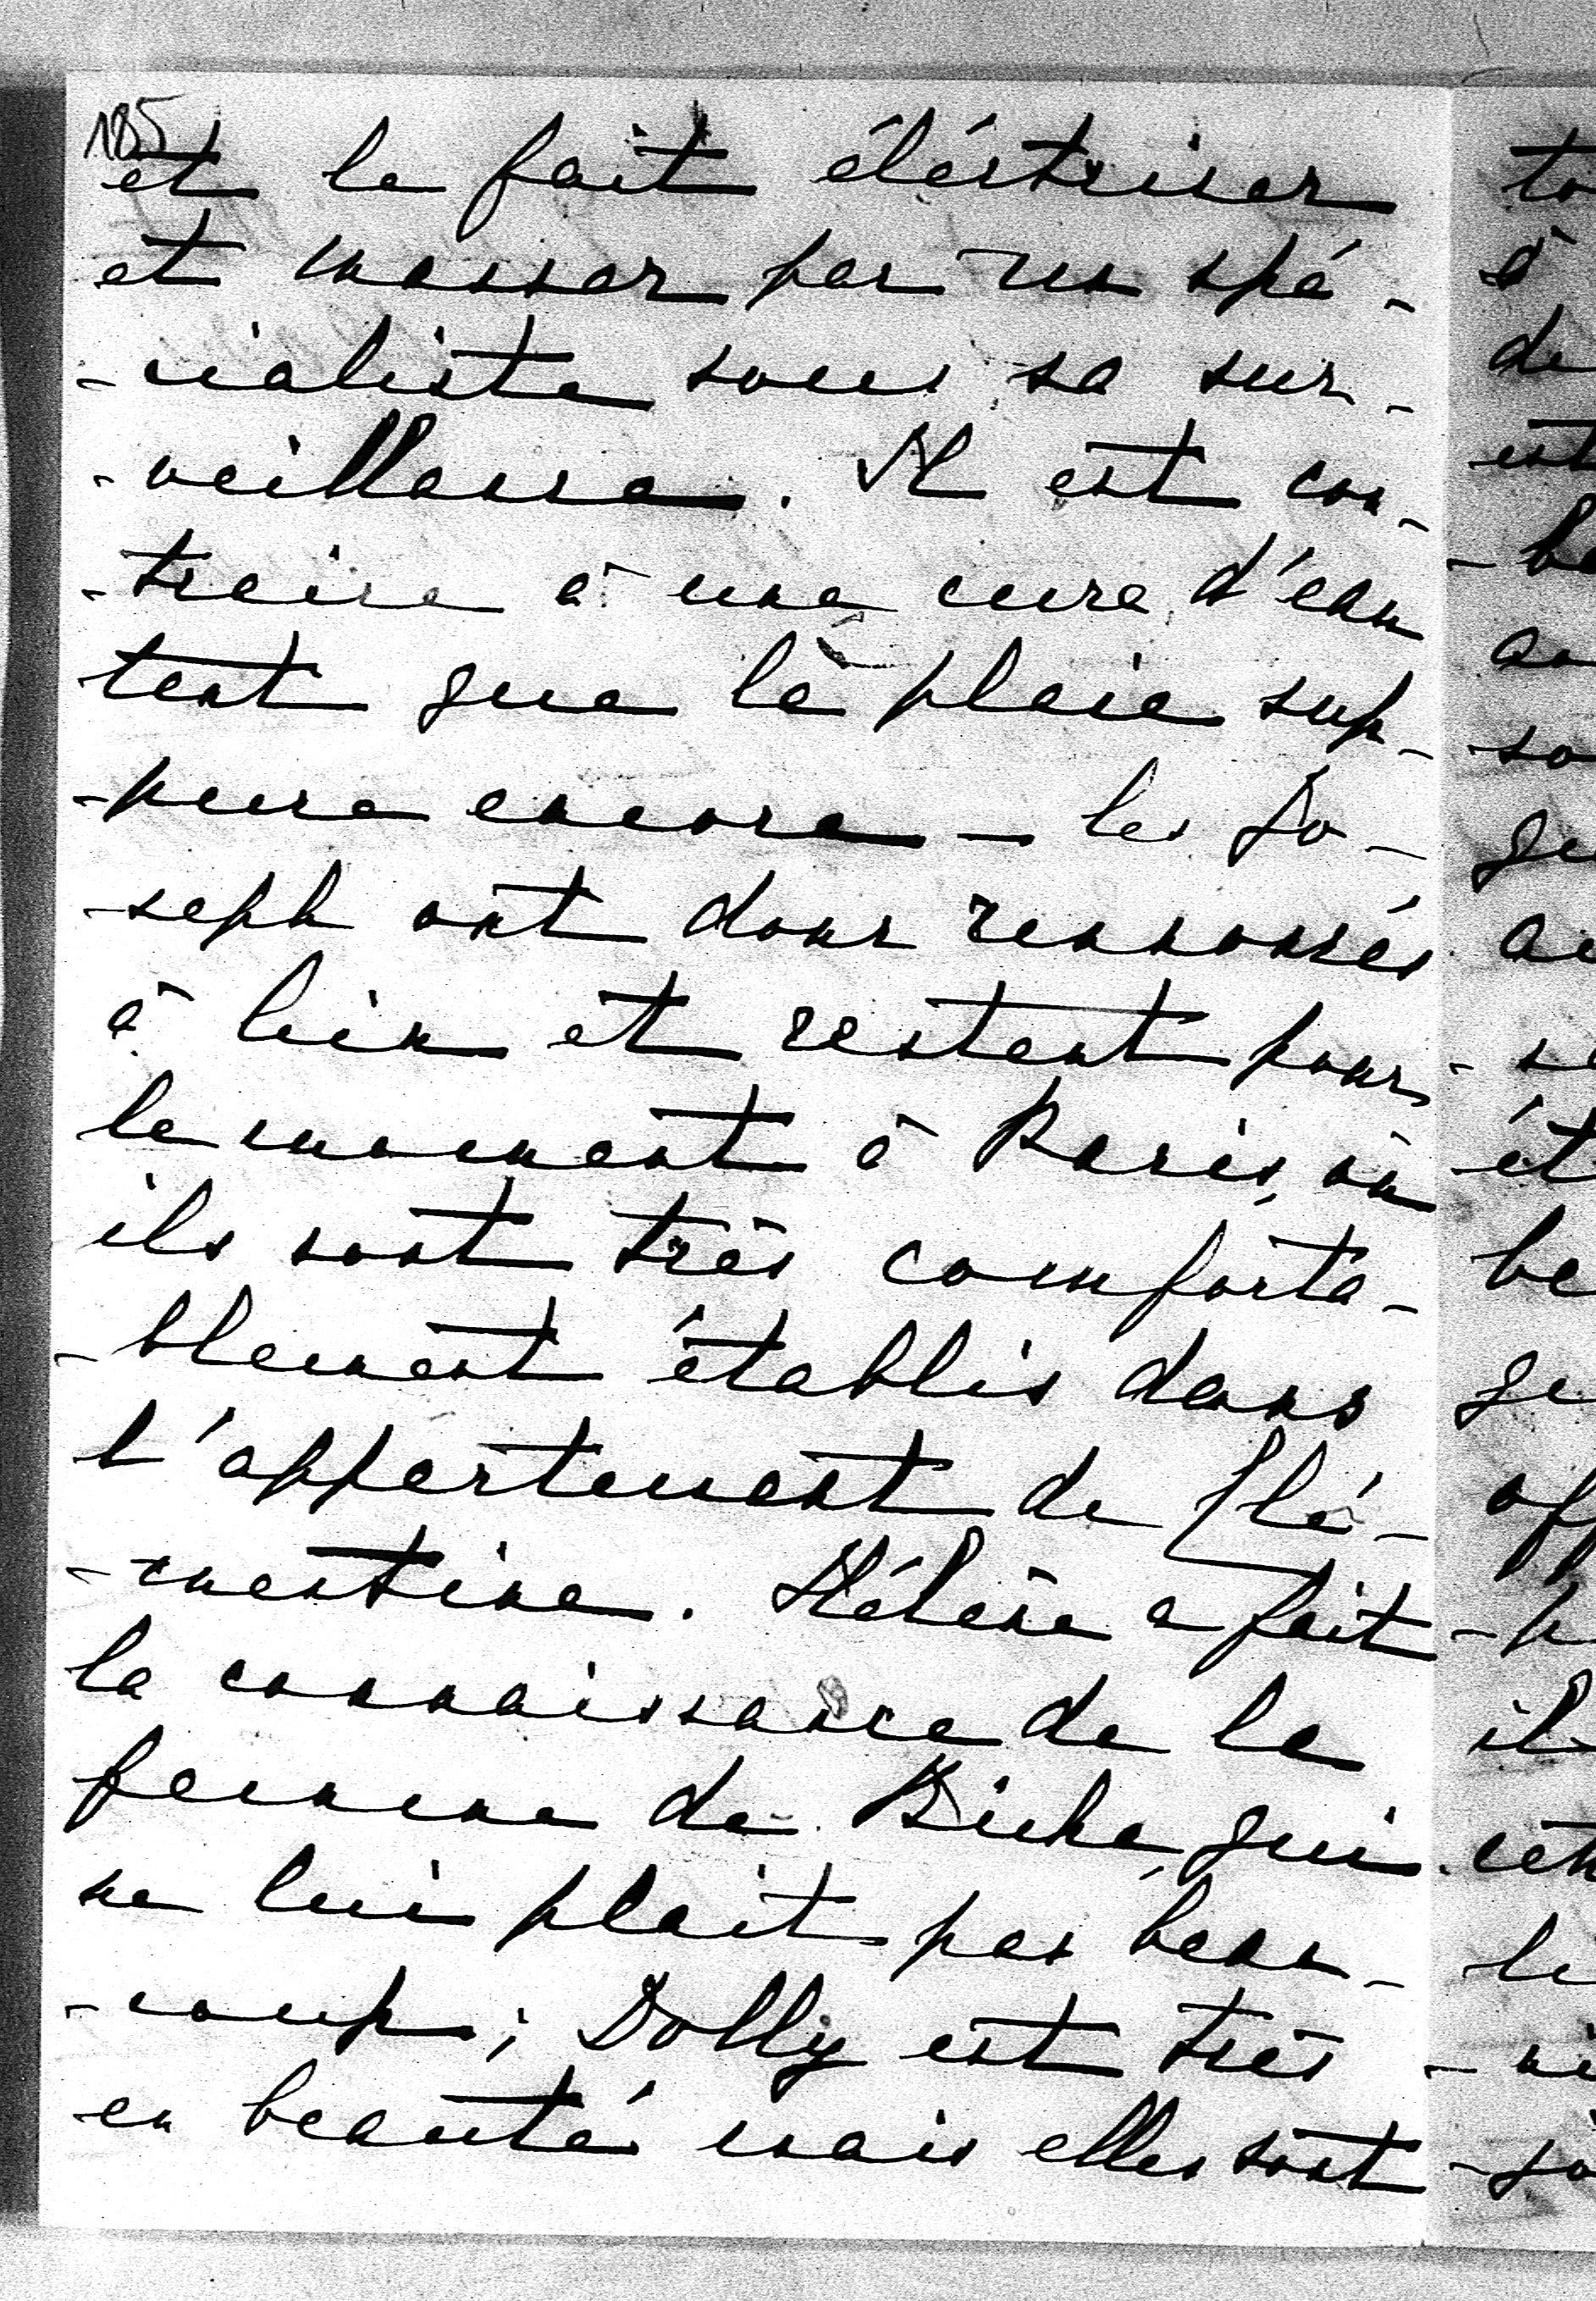 185
et le fait éléctriser
et masser par un spé-
-cialiste sous sa sur-
-veillance. Il est con-
-traire à une cure d'eau
tant que la plaie sup-
-pure encore — les Jo-
-seph ont donc renoncés
à         et restent pour
le moment à Paris, où
ils sont très comforta-
-blement établis dans
l'appartement de Clé-
-mentine. Hélène a fait
la connaissance de la
femme de         qui
ne lui plait pas beau-
-coup; Dolly est très
en beauté mais elles sont